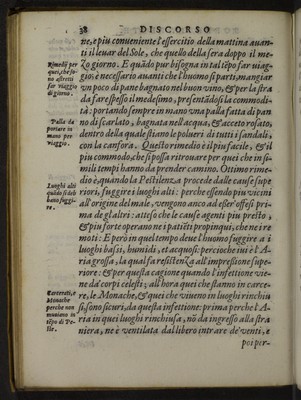 38 DISCORSO
ne, e piu conueniente l'essercitio della mattina auan-
ti il leuar del Sole, che quello della sera doppo il me-
Zo giorno. E quãdo pur bisogna in tal tẽpo far uiag-
gio; è necessario auanti che l'huomo si parti, mangiar
un poco di pane bagnato nel buon vino, & per la stra
da far espesso il medesimo, presentãdosi la commodi-
tà: portando sempre in mano vna palla fatta di pan
no di scarlato, bagnata nell'acqua, & acceto rosato,
dentro della quale stiano le polueri di tutti i sandali,
con la canfora. Questo rimedio è il piu facile, & il
piu commodo, che si possa ritrouare per quei che in si-
mili tempi hanno da prender camino. Ottimo rime-
dio è, quando la Pestilenza procede dalle cause supe
riori, fuggire i luoghi alti: perche essendo piu vicini
all'origine del male, vengono anco ad esser offesi pri-
ma de gl'altri: atteso che le cause agenti piu presto,
& piu forte operano ne i patiẽti propinqui, che ne i re
moti: E però in quel tempo deue l'huomo fuggire a i
luoghi bassi, humidi, et acquosi: percioche iui è l'A-
ria grossa, la qual fa resistenza all'impressione supe-
riore: & per questa cagione quando l'infettione vie-
ne da' corpi celesti; all'hora quei che stanno in carce-
re, le Monache, & quei che viueno in luoghi rinchiu
si, sono sicuri, da questa infettione: prima perche l'A-
ria in quei luoghi rinchiusa, nõ da ingresso alla stra
niera, ne è ventilata dal libero intrare de' venti, e
poi per-
Rimedij per
quei, che so-
no astretti
far viaggio
di giorno.
Palla da
portare in
mano per
viaggio.
Luoghi alti
quãdo si deb
bano fuggi-
re.
Carcerati, e
Monache
perche non
muoiano in
tẽpo di Pe-
ste.